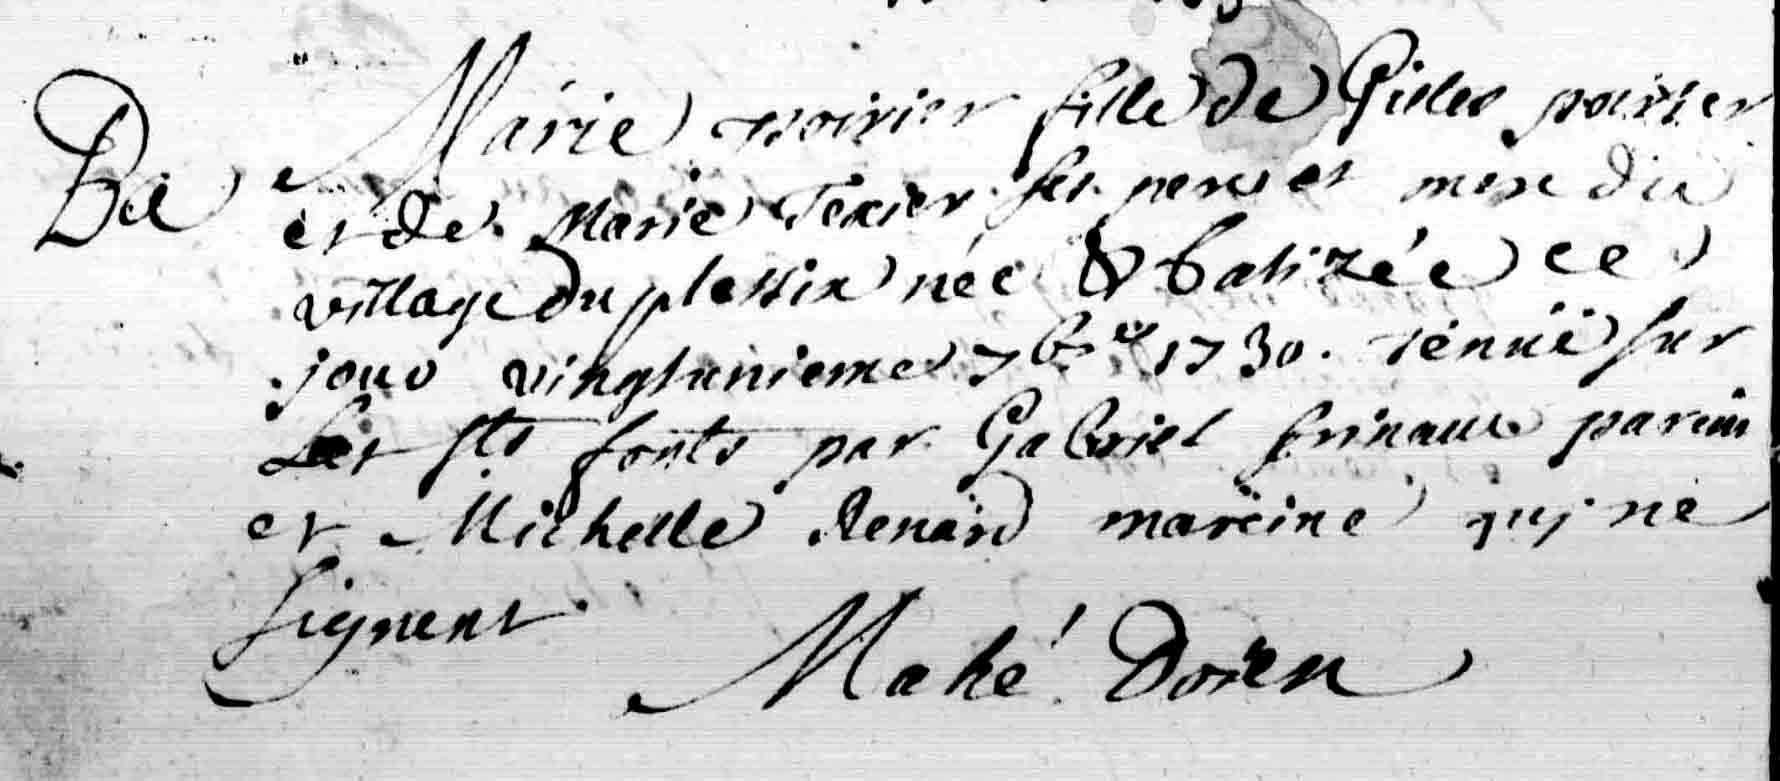 Ba Marie poirier fille de Gilles poirier
et de Marie Texier ses pere et mere du
village du plessix née & batizée ce
jour vingtunieme 7bre 1730. tenuë sur
Les Sts fonts par Gabriel parain
et Michelle Renard mareine qui ne
signent
Mahé Doïen